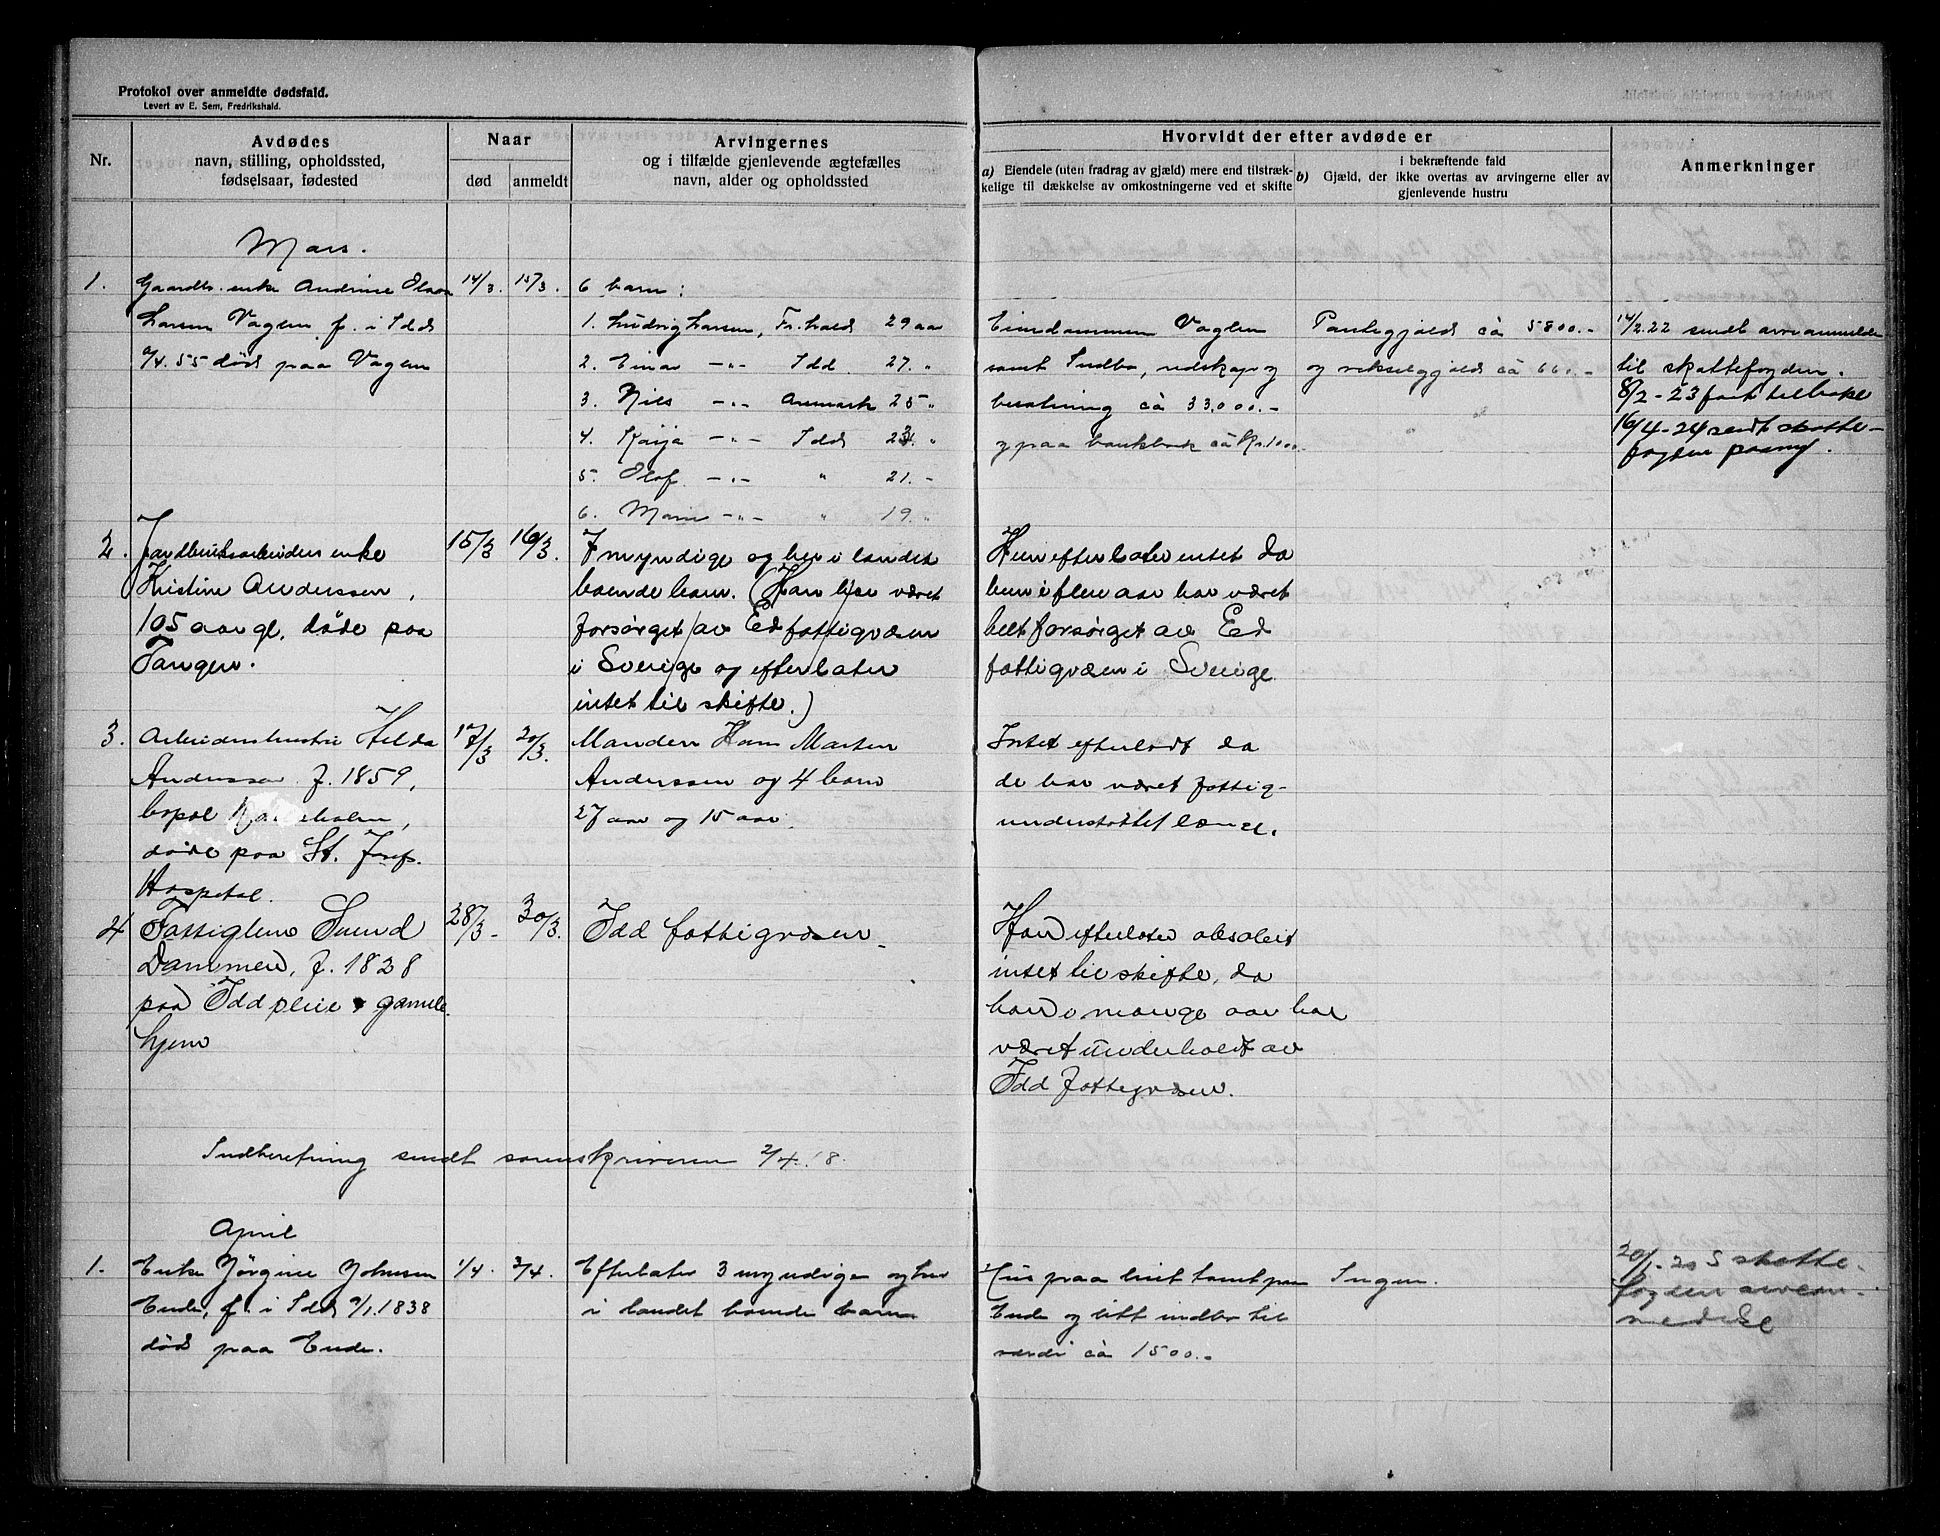 Protokol over anmeldte dødsfald.
Levert av E. Sem, Fredrikshald.
Nr.
Avdødes
navn, stilling, opholdssted,
fødselsaar, fødested
Naar
død
anmeldt
Arvingernes
og i tilfælde gjenlevende ægtefælles
navn, alder og opholdssted
Hvorvidt der efter avdøde er
a) Eiendele (uten fradrag av gjæld) mere end tilstræk-
kelige til dækkelse av omkostningerne ved et skifte
b)
i bekræftende fald
Gjæld, der ikke overtas av arvingerne eller av
gjenlevende hustru
Anmerkninger
Mars.
1.
Gaardbr. enke Andrine Olava
Larsen Vagen f. i Idd
/4. 55 død paa Vagen
14/3.
15/3.
6 barn:
1. Ludvig Larsen, Fr.hald 29 aa
2. Einar -"- Idd 27. "
3. Nils -"- Aremark 25 "
4. Kaija -"- Idd 23. "
5. Olaf -"- " 21. -
6. Marie -"- " 19. "
Eiendommen Vaglen
samt Indbo, redskap og
besætning ca 33.000.-
og paa bankbok ca Kr. 1000.-
Pantegjæld ca 5800.-
og vekselgjæld ca 600.-
14/2.22 sendt arveanmelde
til skattefogden.
8/2-23 faat tilbake
16/4-24 sendt skatte-
fogden paany.
2.
Jordbruksarbeiders enke
Kristine Anderssen,
105 aar gl. døde paa
Tangen.
15/3
16/3.
7 myndige og her i landet
boende barn. (Han har været
forsørget av Ed fattigvæsen
i Sverige og efterlater
intet til skifte.)
Hun efterlater intet da
hun i flere aar har været
helt forsørget av Ed
fattigvæsen i Sverige.
3.
Arbeiderhustru Hilda
Anderssen f. 1859,
bopæl holm,
døde paa St. Josefs
Hospital.
17/3
20/3.
Manden Hans Martin
Anderssen og 4 barn
27 aar og 15 aar.
Intet efterladt da
de har været fattig-
understøttet længe.
4
Fattiglem Svend
Dammen, f. 1828
paa Idd pleie & gamle-
hjem
28/3-
30/3.
Idd fattigvæsen
Han efterlater absolut
intet til skifte, da
han i mange aar har
været underholdt av
Idd fattigvæsen.
Indberetning sendt sorenskriveren 2/4.18.
April
1.
Enke Jørgine Johnsen
Ende, f. i Idd /1.1838
død paa Ende.
1/4.
2/4.
Efterlater 3 myndige og her
i landet boende barn
Hus paa leiet tomt paa
Ende og litt indbo til
værdi ca 1500.-
Ingen.
20/1-20 S skatte-
fogden arvean-
meldelse